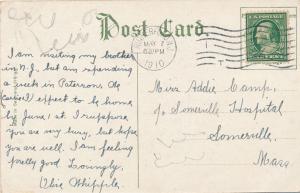 Post Card
MAY 7
1910
I am visiting my brother
in N.J., but am spending
a week in Paterson
expect to be home
by June 1st. I suppose
you are very busy, but hope
you are well. I am feeling
pretty good. Lovingly,
Whipple.
Miss Addie Camp,
c/o Somerville Hospital
Somerville,
Mass